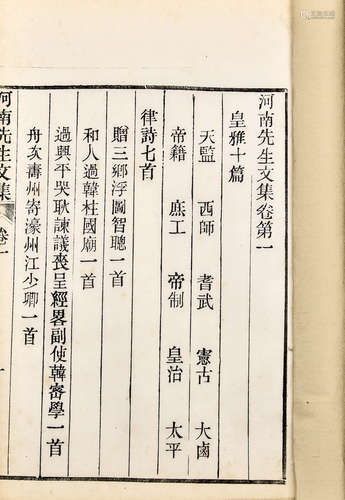 河南先生文集卷第一
皇雅十篇
天監 西師 耆武 憲古 大鹵
帝籍 庶工 帝制 皇治 太平
律詩七首
贈三鄉浮圖智聰一首
和人過韓杜國廟一首
過興平哭耿諫議喪呈經畧副使韓密學一首
舟次壽州寄濠州江少卿一首
河南先生文集 卷一